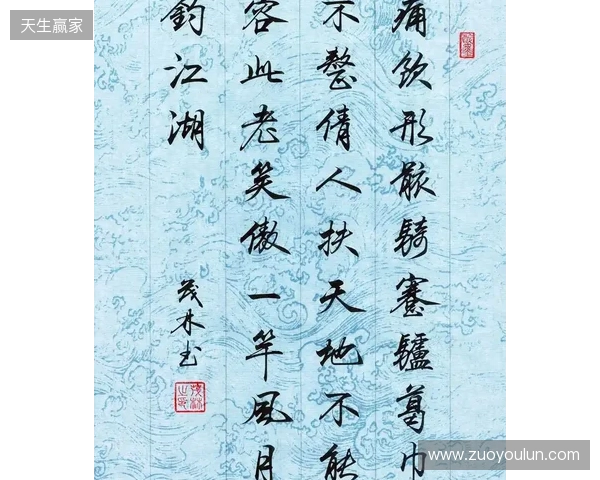 天生赢家
痛飲形骸騎蹇驢葛巾
不整倩人扶天地不能
容此老笑傲一竿風月
釣江湖
茂林书
www.zuoyoulun.com